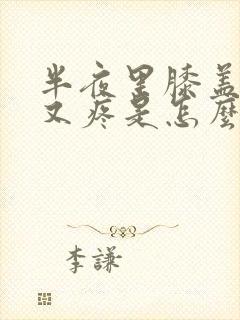 半夜里膝盖
又疼是怎麽
李謙